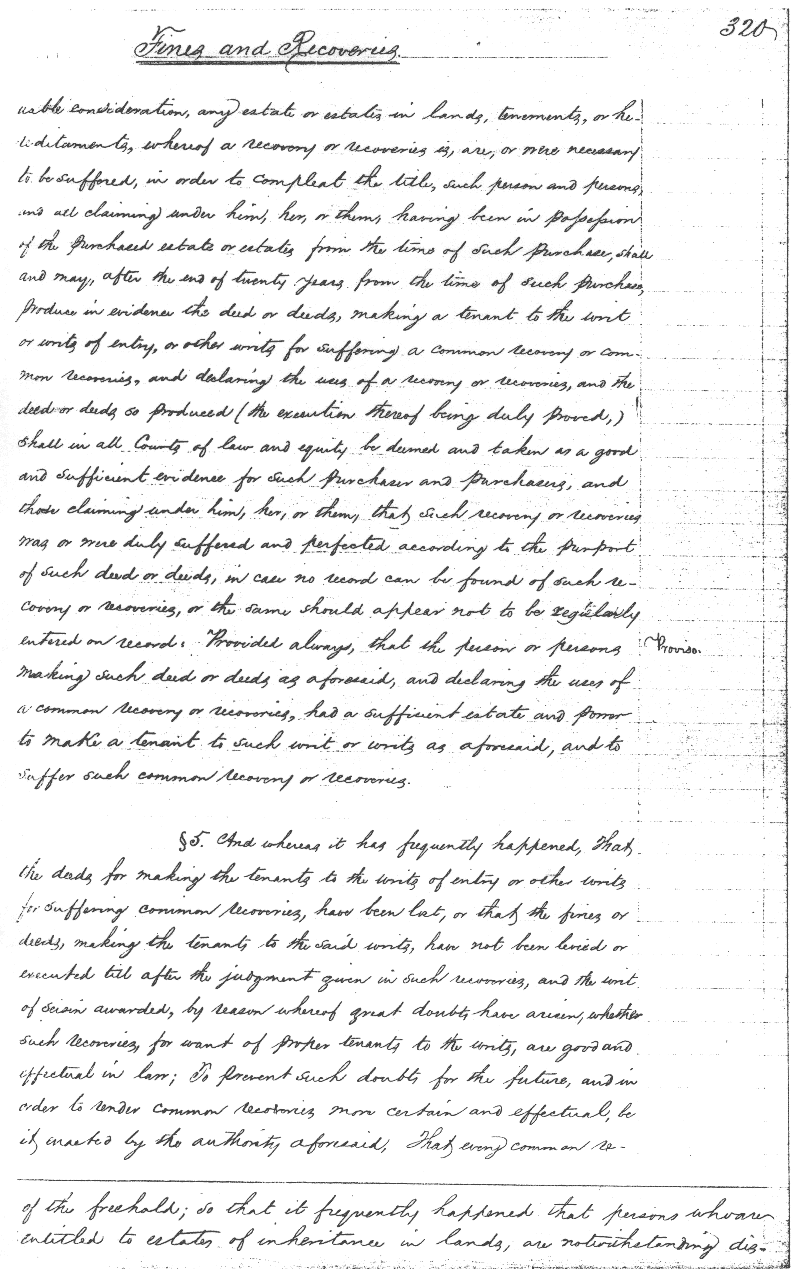 320
Fines and Recoveries.
uable consideration, any estate or estates in lands, tenements, or he-
reditaments, whereof a recovery or recoveries is, are, or were necessary
to be suffered, in order to compleat the title, such person and persons,
and all claiming under him, her, or them, having been in possession
of the purchased estate or estates from the time of such purchase, shall
and may, after the end of twenty years from the time of such purchase,
produce in evidence the deed or deeds, making a tenant to the writ
or writs of entry, or other writs for suffering a common recovery or com-
mon recoveries, and declaring the uses of a recovery or recoveries, and the
deed or deeds so produced (the execution thereof being duly proved,)
shall in all Courts of law and equity be deemed and taken as a good
and sufficient evidence for such purchaser and purchasers, and
those claiming under him, her, or them, that such recovery or recoveries
was or were duly suffered and perfected according to the purport
of such deed or deeds, in case no record can be found of such re-
covery or recoveries, or the same should appear not to be regularly
entered on record: Provided always, that the person or persons
Proviso.
making such deed or deeds as aforesaid, and declaring the uses of
a common recovery or recoveries, had a sufficient estate and power
to make a tenant to such writ or writs as aforesaid, and to
suffer such common recovery or recoveries.
§5. And whereas it has frequently happened, That
the deeds for making the tenants to the writs of entry or other writs
for suffering common recoveries, have been lost, or that the fines or
deeds, making the tenants to the said writs, have not been levied or
executed till after the judgment given in such recoveries, and the writ
of seisin awarded, by reason whereof great doubts have arisen, whether
such recoveries, for want of proper tenants to the writs, are good and
effectual in law; To prevent such doubts for the future, and in
order to render common recoveries more certain and effectual, be
it enacted by the authority aforesaid, That every common re-
of the freehold; so that it frequently happened that persons who are
entitled to estates of inheritance in lands, are notwithstanding dis-